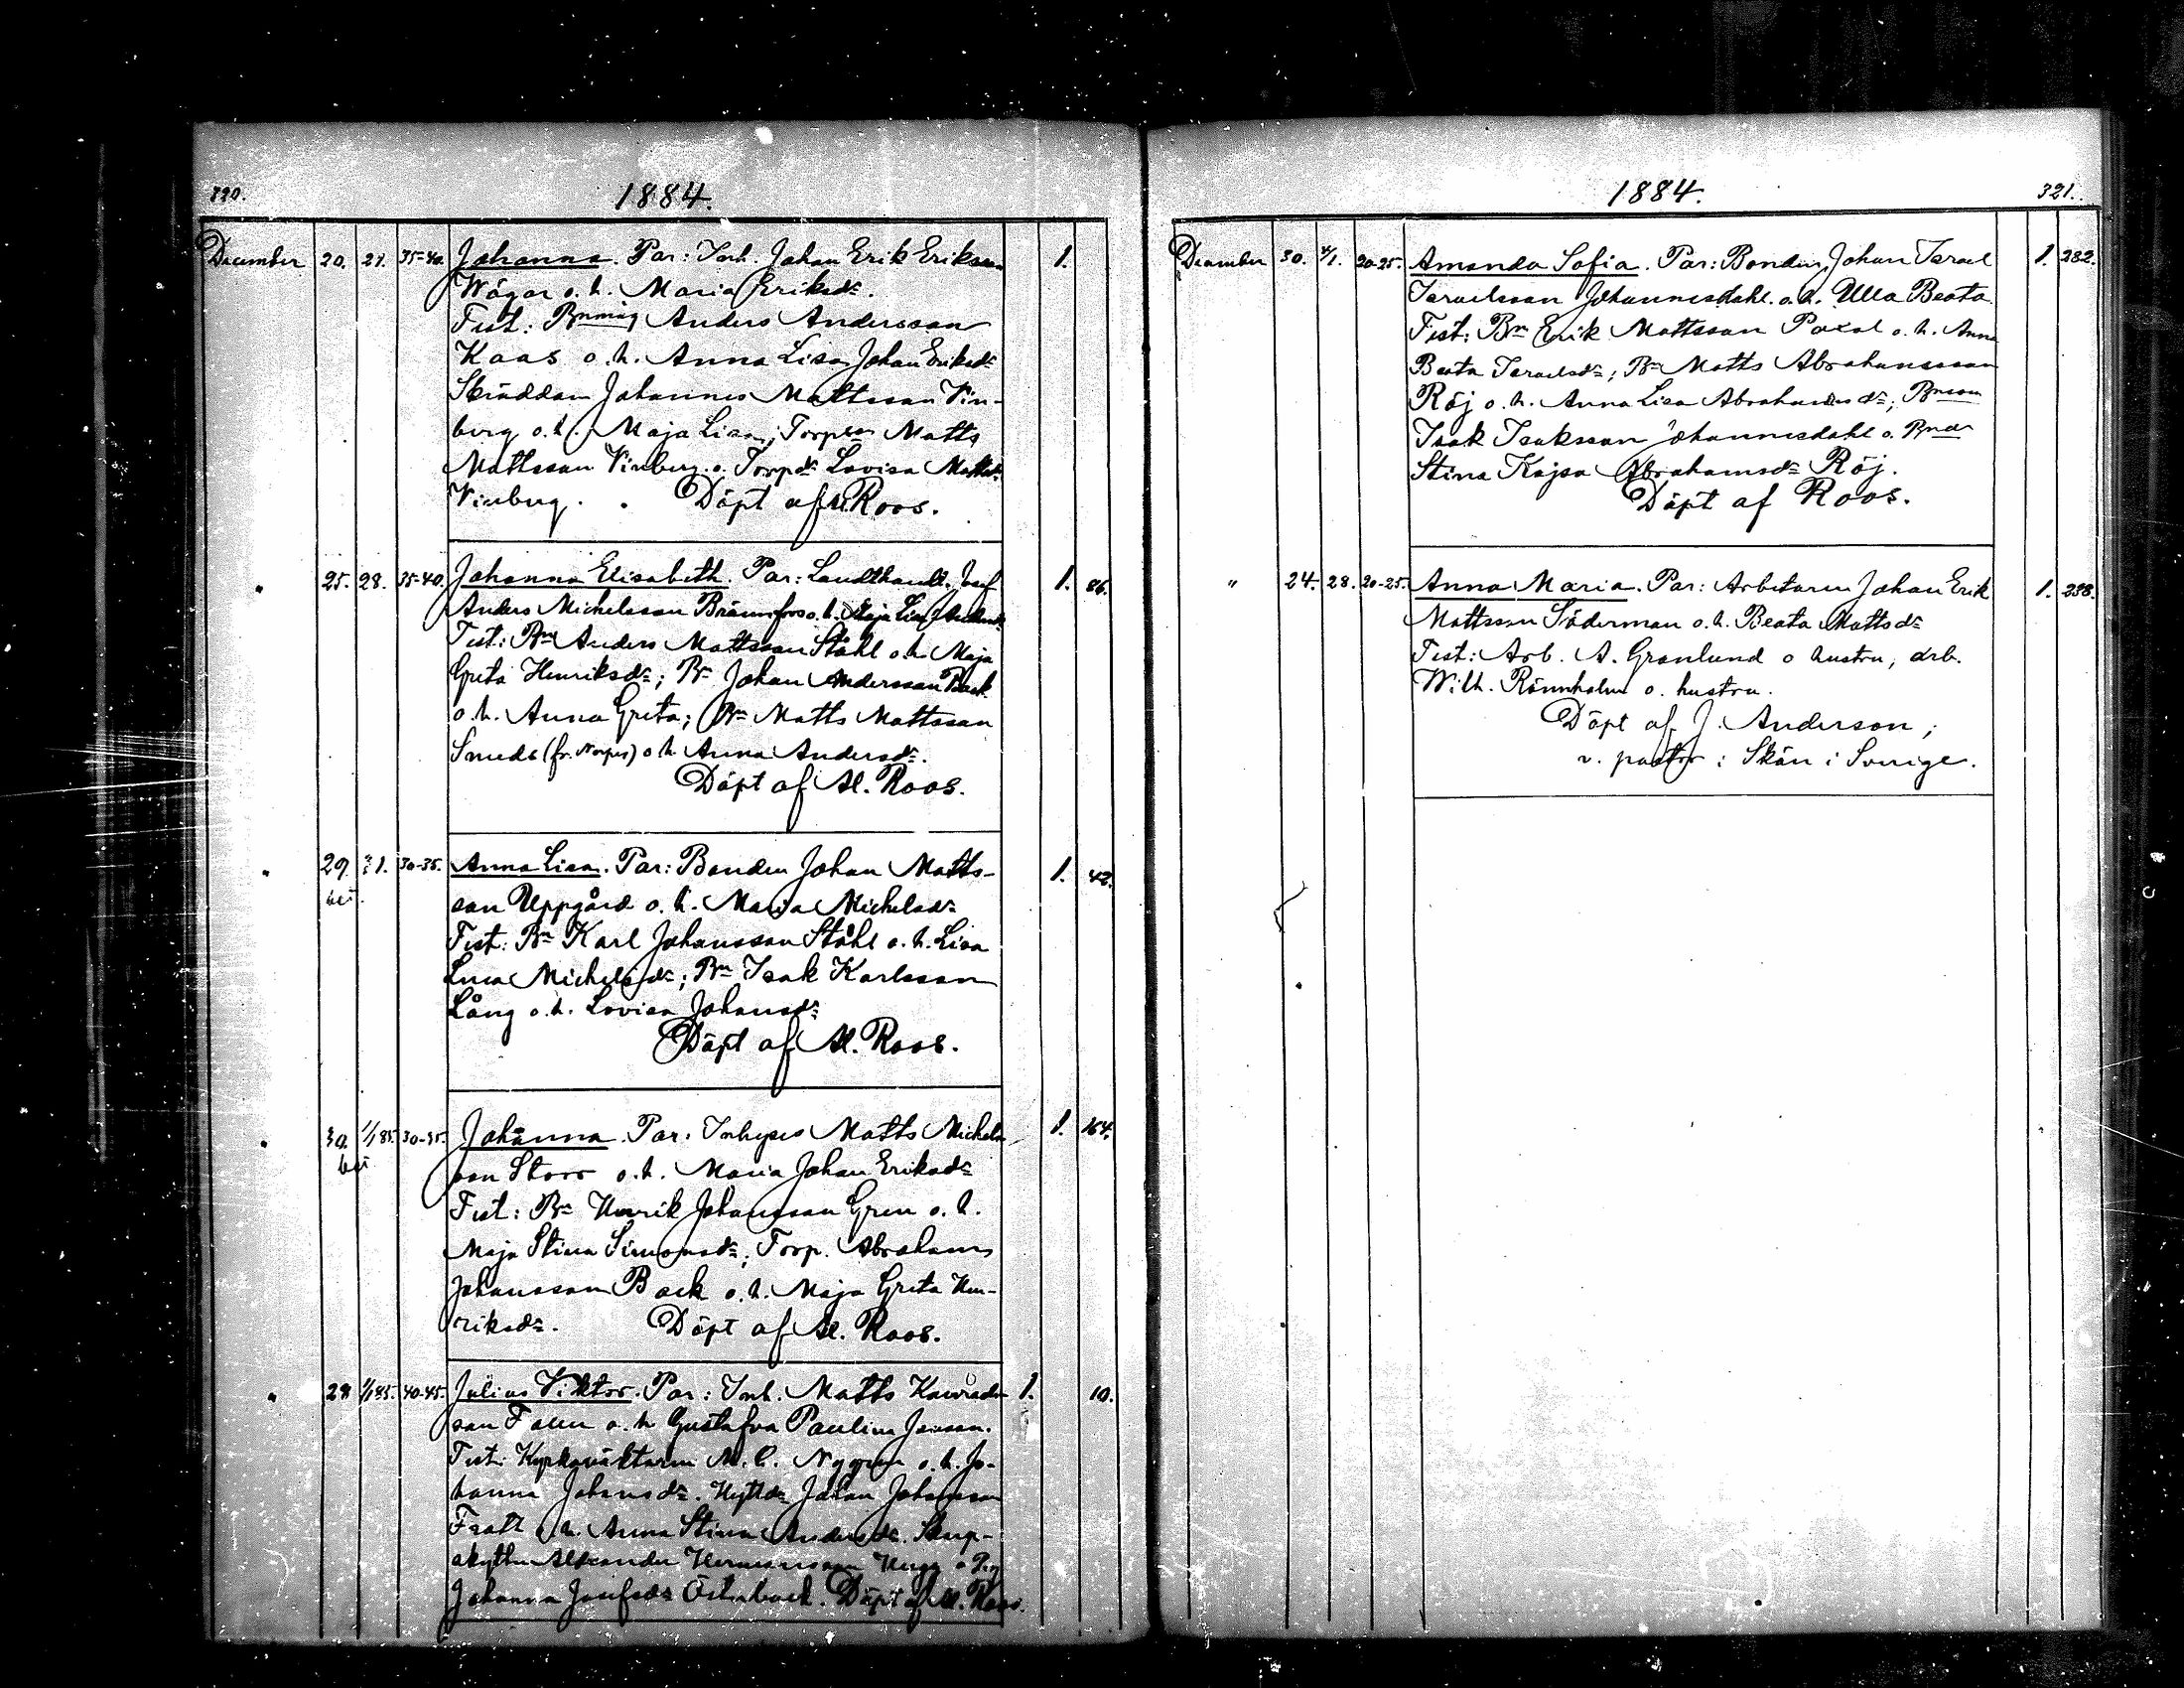 320.
1884.
December 20. 27. 35-40. Johanna. Par: Inh. Johan Erik Eriksson 1.
Wägar o. h. Maria Eriksdr.
Test: Bnmåg Anders Andersson
Kaas o. h. Anna Lisa Johan Eriksdr
Skräddarn Johannes Mattsson Vin-
berg o. h. Maja Lisa; Torpson Matts
Mattsson Vinberg o. Torpdr Lovisa Mattsdr
Vinberg. Döpt af Al. Roos.
" 25. 28. 35-40. Johanna Elisabeth. Par: Landthandl. Josef 1. 86.
Anders Michelsson Brännfors o. h. Maja Lisa Andersdr
Test: Bn Anders Mattsson Ståhl o. h. Maja
Greta Henriksdr; Bn Johan Andersson Back
o. h. Anna Greta; Bn Matts Mattsson
Smeds (fr. Närpes) o h. Anna Andersdr.
Döpt af Al. Roos.
" 29. 31. 30-35. Anna Lisa. Par: Bonden Johan Matts- 1. 42.
son Uppgård o. h. Maria Michelsdr
Test: Bn Karl Johansson Ståhl o. h. Lisa
Lena Michelsdr; Bn Isak Karlsson
Lång o. h. Lovisa Johansdr
Döpt af Al. Roos.
" 30. 1/1 85. 30-35. Johanna. Par: Inhyses Matts Michels 1. 164.
son Storr o. h. Maria Johan Eriksdr
Test: Bn Henrik Johansson Gren o. h.
Maja Stina Simonsdr; Torp. Abraham
Johansson Back o. h. Maja Greta Hen-
riksdr. Döpt af Al. Roos.
" 28 1/1 85. 40-45. Julius Viktor. Par: Inh. Matts Konrads- 1. 10.
son o. h Gustafva Paulina Jonsson.
Test: Kyrkoväktaren M. C. Nygren o. h. Jo-
hanna Johansdr. Johan Johansson
o. h. Anna Stina Andersdr. Skarp-
skytten Alexander Hermansson o Pig
Johanna Josefsdr Österback. Döpt af Al. Roos.
1884.
321.
December 30. 4/1. 20-25. Amanda Sofia. Par: Bonden Johan Israel 1. 282.
Israelsson Johannesdahl. o. h. Ulla Beata
Test: Bn Erik Mattsson Paxal o. h. Anna
Beata Israelsdr; Bn Matts Abrahamsson
Röj o. h. Anna Lisa Abrahamsdr; Bnson
Isak Isaksson Johannesdahl o. Bndr
Stina Kajsa Abrahamsdr Röj.
Döpt af Roos.
" 24. 28. 20-25. Anna Maria. Par: Arbetaren Johan Erik 1. 238.
Mattsson Söderman o. h. Beata Mattsdr
Test: Arb. A. Granlund o hustru, arb.
Wilh. Rönnholm o. hustru.
Döpt af J. Anderson;
v. pastor i Skön i Sverige.